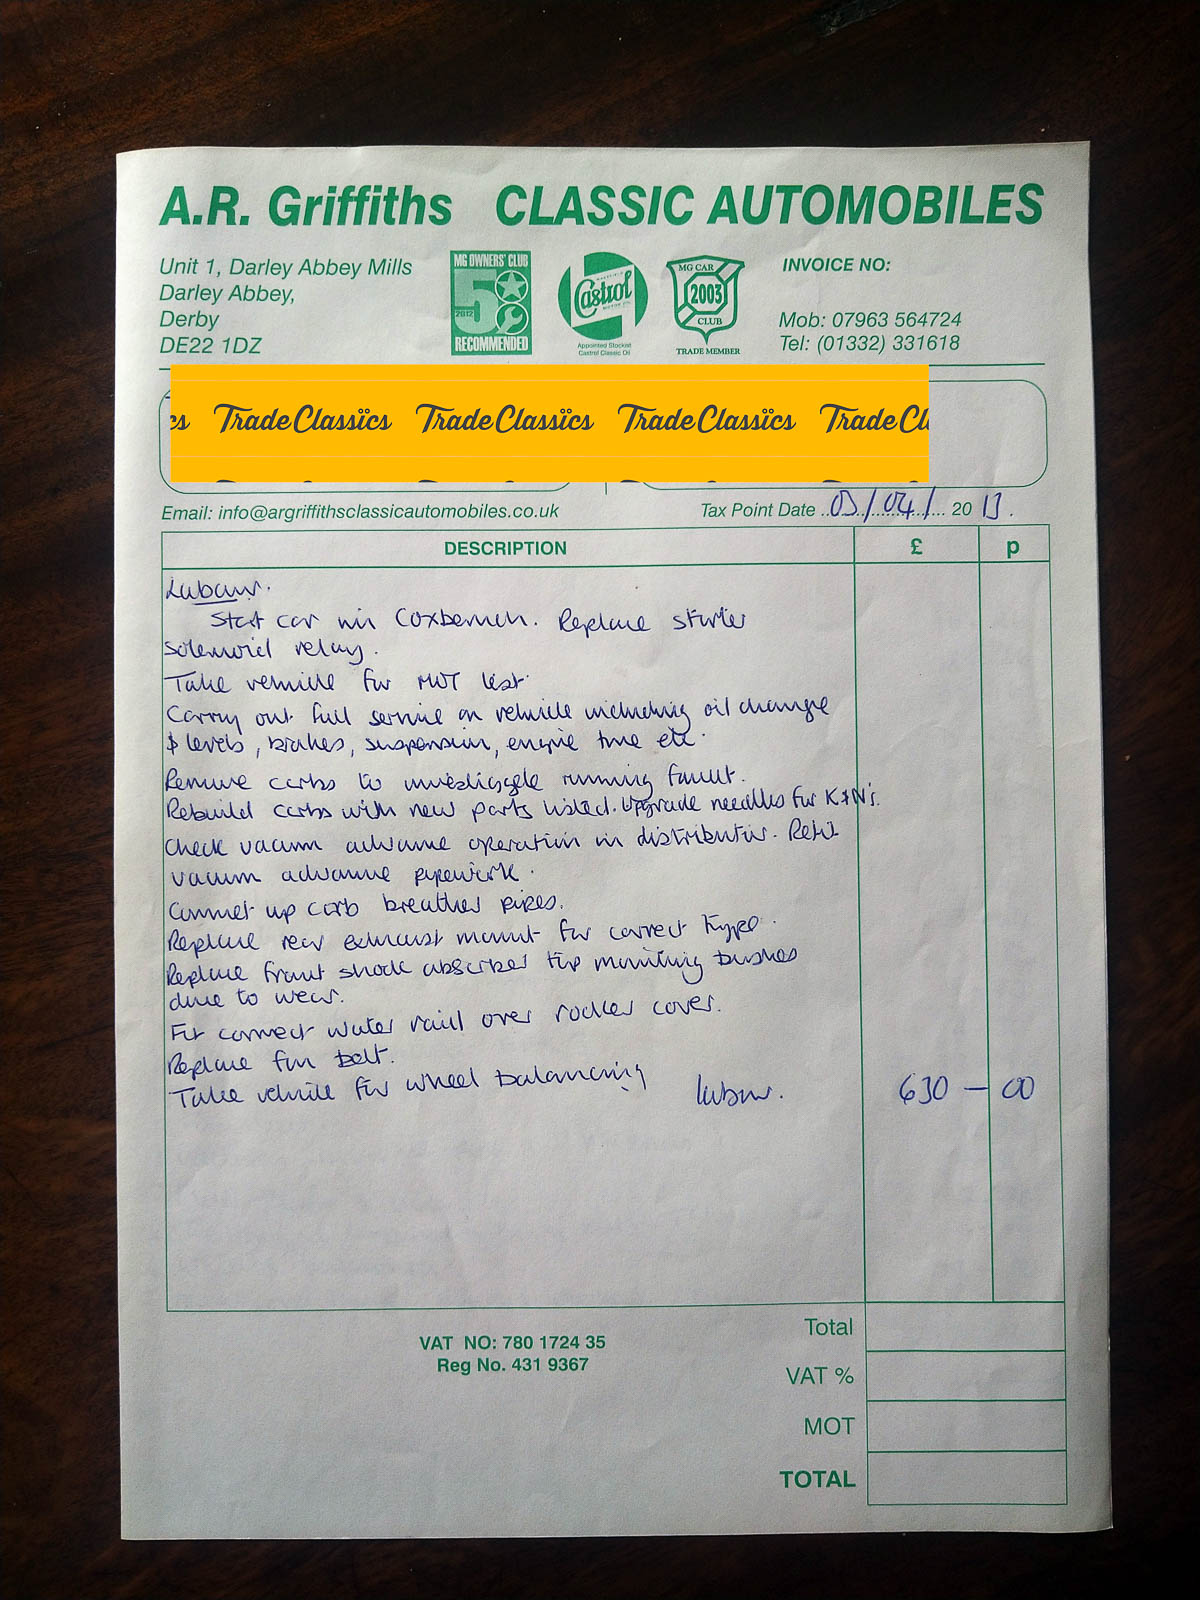 A.R. Griffiths CLASSIC AUTOMOBILES
Unit 1, Darley Abbey Mills
Darley Abbey,
Derby
DE22 1DZ
MG OWNERS' CLUB
5
2012
RECOMMENDED
Castrol
MOTOR OIL
Appointed Stockist
Castrol Classic Oil
MG CAR
2003
CLUB
TRADE MEMBER
INVOICE NO:
Mob: 07963 564724
Tel: (01332) 331618
cs TradeClassics TradeClassics TradeClassics TradeCl
Email: info@argriffithsclassicautomobiles.co.uk
Tax Point Date 03/04/ 2013.
DESCRIPTION £ p
Labour.
Start car in Coxbench. Replace starter
solenoid relay.
Take vehicle for MOT test.
Carry out full service on vehicle including oil change
& levels, brakes, suspension, engine tune etc.
Remove carbs to investigate running fault.
Rebuild carbs with new parts listed. Upgrade needles for K&N's.
Check vacum advance operation in distributor. Refit
vacum advance pipework.
Connect up carb breather pipes.
Replace rear exhaust mount for correct type.
Replace front shock absorber top mounting bushes
due to wear.
Fit correct water rail over rocker cover.
Replace fan belt.
Take vehicle for wheel balancing labour. 630 — 00
VAT NO: 780 1724 35
Reg No. 431 9367
Total
VAT %
MOT
TOTAL